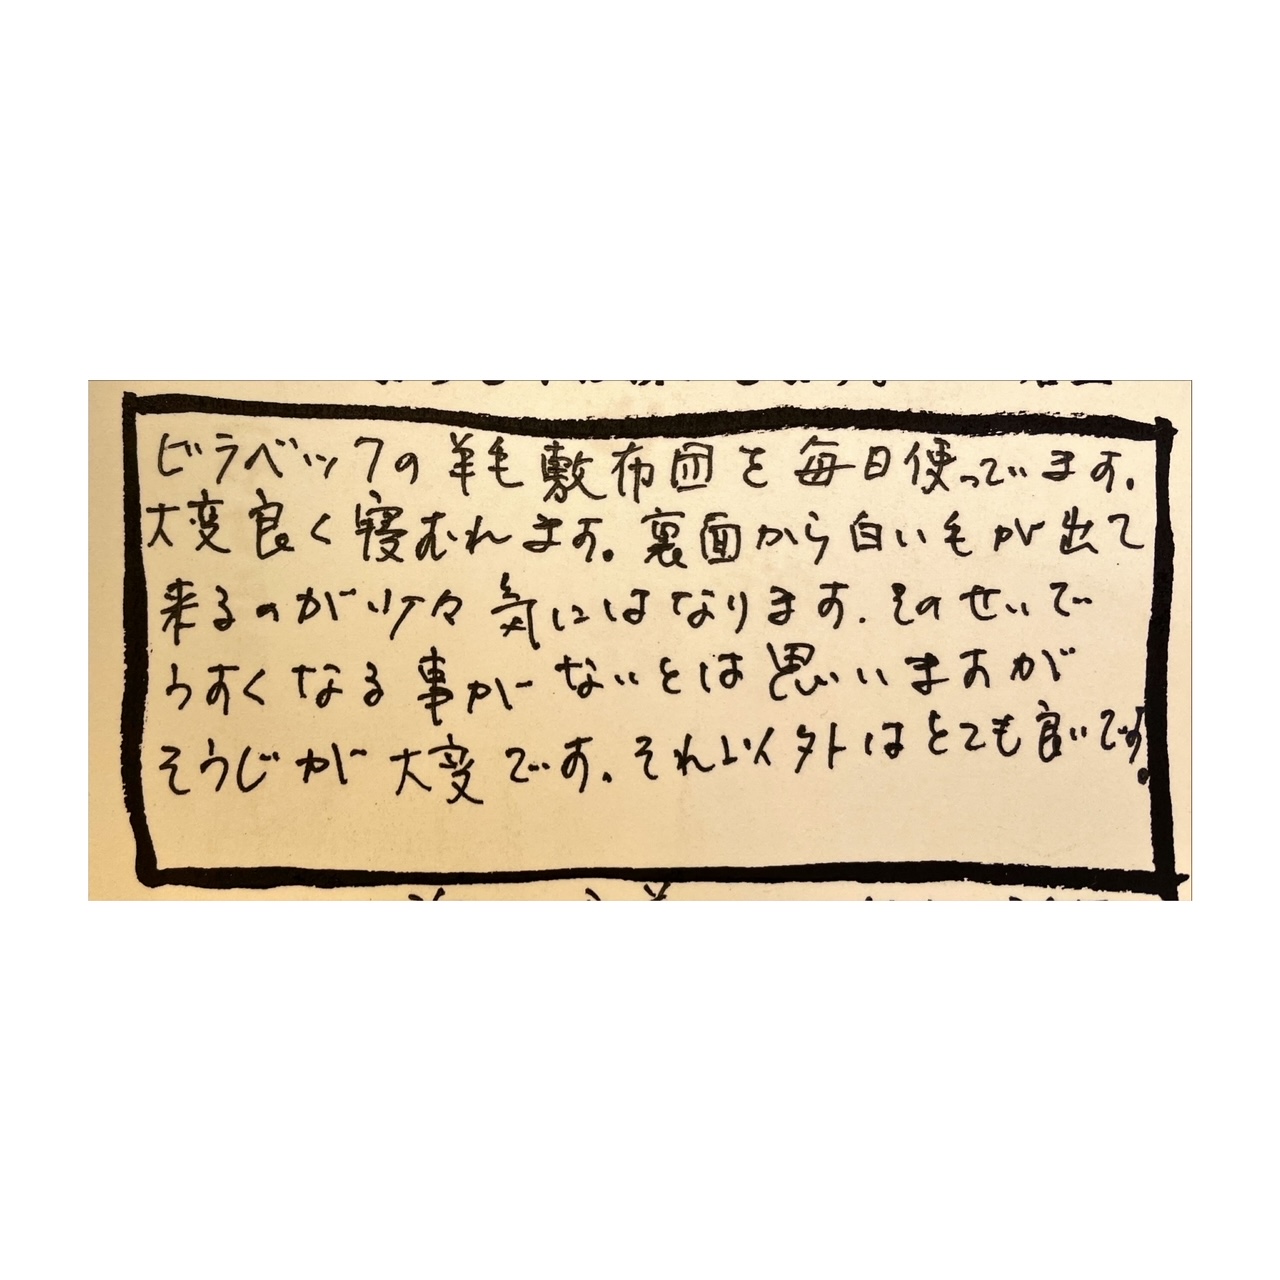 ビラベックの羊毛敷布団を毎日使っています。
大変良く寝むれます。裏面から白い毛が出て
来るのが少々気にはなります。そのせいで
うすくなる事がないとは思いいますが
そうじが大変です。それ以外はとても良いです。